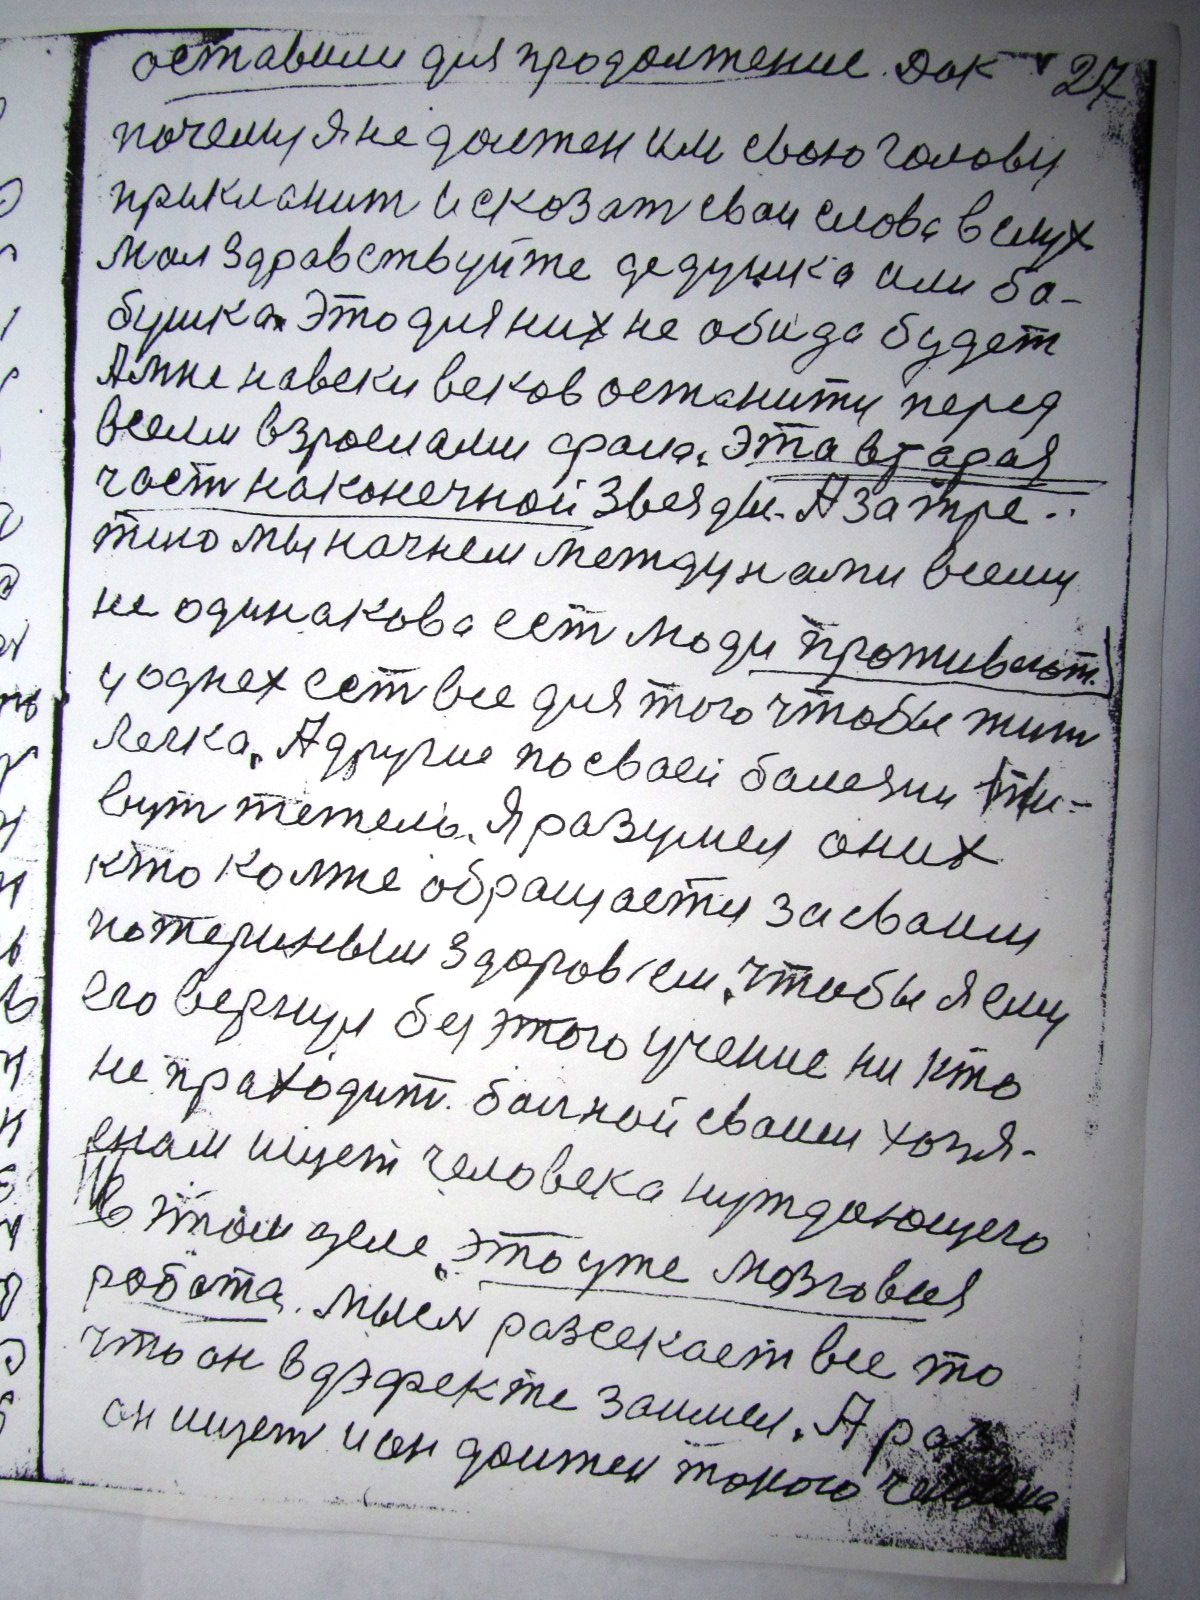 оставили для продолжение. Док 27
почему я не должен им свою голову
прикланит и сказат сваи слова вслух
мол здравствуйте дедушка или ба-
бушка. Это для них не обида будет
А мне навеки веков останитц перед
всеми взрослами фоло. Эта втарая
част наконечной звезды. А за тре-
тию мы начнем между нами всеми
не одинакова ест люди проживают.
у однех ест все для того чтобы жит
легка. А другие по сваей болезни жи-
вут тежело. Я разумел о них
кто ко мне обращаетц за сваим
потериным здоровием, чтобы я ему
его вернул без этого учение ни кто
не праходит. болной сваим хозя-
енам ищет человека нуждающего
в этом деле. Это уже мозговыя
работа. Мысл разсекает все то
что он в дэфекте заимел. А раз
он ищет и он должен такого человека